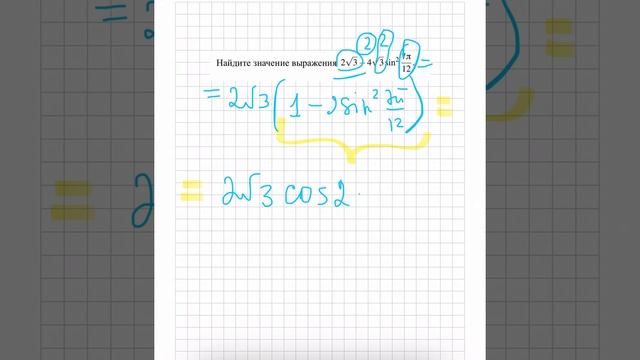 Найдите значение выражения 2√3 − 4√3 sin² 7π/12 =
2 2
= 2√3 (1 − 2 sin² 7π/12) =
= 2√3 cos 2 ·